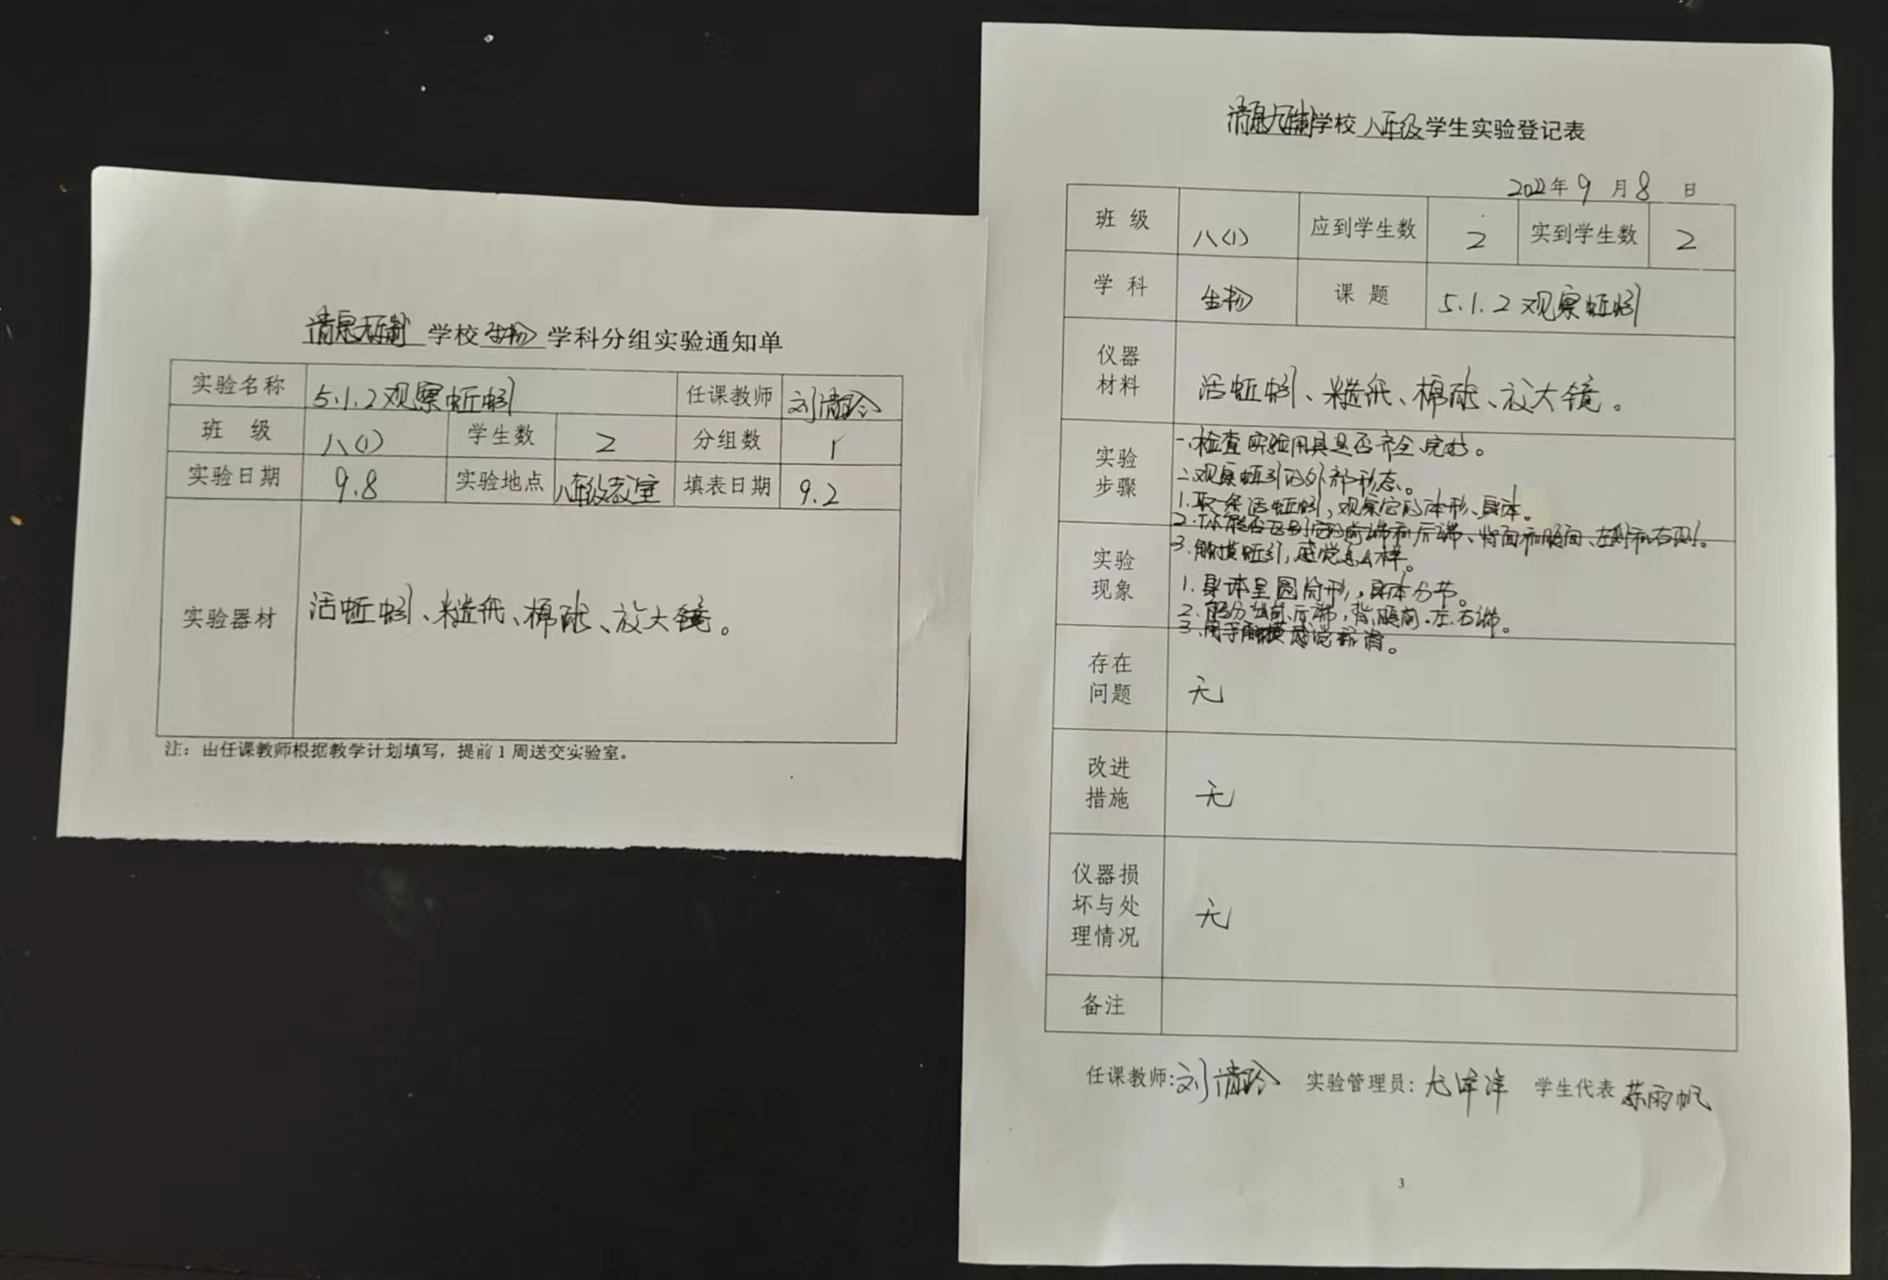 清原九年制学校 生物 学科分组实验通知单
实验名称 5.1.2观察蚯蚓 任课教师 刘清玲
班 级 八(1) 学生数 2 分组数 1
实验日期 9.8 实验地点 八年级教室 填表日期 9.2
实验器材 活蚯蚓、糙纸、棉球、放大镜。
注：由任课教师根据教学计划填写，提前1周送交实验室。
清原九年制学校 八年级 学生实验登记表
2022年9月8日
班 级 八(1) 应到学生数 2 实到学生数 2
学 科 生物 课 题 5.1.2观察蚯蚓
仪器
材料
活蚯蚓、糙纸、棉球、放大镜。
实验
步骤
一.检查实验用具是否齐全、完好。
二.观察蚯蚓的外部形态。
1.取一条活蚯蚓，观察它的体形、身体。
2.能否区别它的前端和后端、背面和腹面、左侧和右侧。
3.触摸蚯蚓，感觉怎么样。
实验
现象
1.身体呈圆筒形，身体分节。
2.能分出前、后端，背、腹面、左、右端。
3.用手触摸感觉黏滑。
存在
问题
无
改进
措施
无
仪器损
坏与处
理情况
无
备注
任课教师:刘清玲 实验管理员: 尤洋洋 学生代表 苏雨帆
3